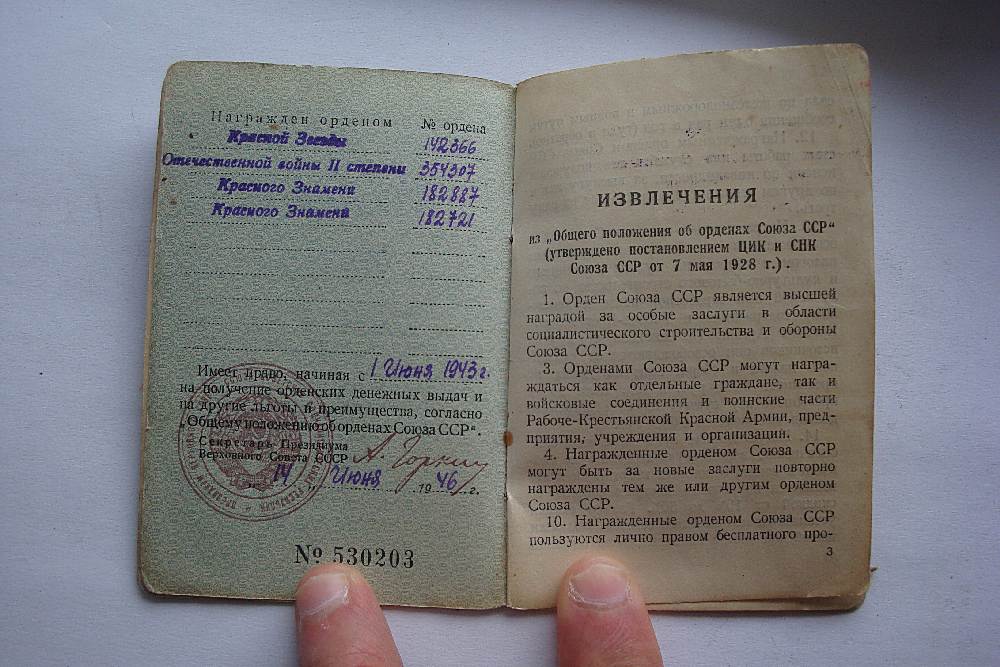 Награжден орденом № ордена
Красной Звезды 142366
Отечественной войны II степени 354307
Красного Знамени 182887
Красного Знамени 182721
Имеет право, начиная с 1 Июня 1943г.
на получение орденских денежных выдач и
на другие льготы и преимущества, согласно
„Общему положению об орденах Союза ССР“.
Секретарь Президиума
Верховного Совета СССР А. Горкин
14 „ Июня 1946 г.
№ 530203
ИЗВЛЕЧЕНИЯ
из „Общего положения об орденах Союза ССР“
(утверждено постановлением ЦИК и СНК
Союза ССР от 7 мая 1928 г.).
1. Орден Союза ССР является высшей
наградой за особые заслуги в области
социалистического строительства и обороны
Союза ССР.
3. Орденами Союза ССР могут награ-
ждаться как отдельные граждане, так и
войсковые соединения и воинские части
Рабоче-Крестьянской Красной Армии, пред-
приятия, учреждения и организации.
4. Награжденные орденом Союза ССР
могут быть за новые заслуги повторно
награждены тем же или другим орденом
Союза ССР.
10. Награжденные орденом Союза ССР
пользуются лично правом бесплатного про-
3